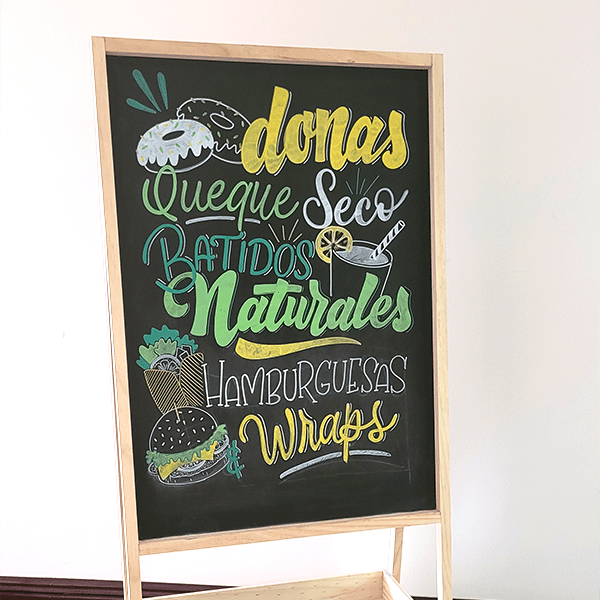 donas
Queque Seco
BATIDOS
Naturales
HAMBURGUESAS
& Wraps